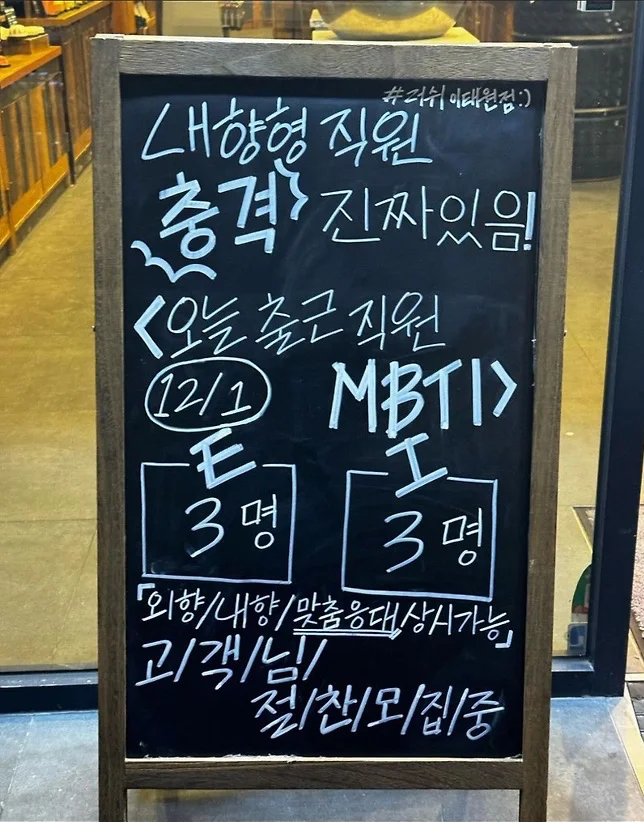 #러쉬 이태원점:)
내향형 직원
충격 진짜있음!
<오늘 출근 직원
12/1 MBTI>
E I
3명 3명
「외향/내향/맞춤응대/상시가능」
고/객/님/
절/찬/모/집/중